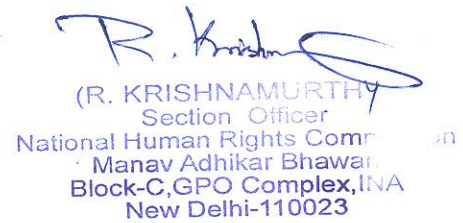 R. Krishna
(R. KRISHNAMURTHY
Section Officer
National Human Rights Comm on
Manav Adhikar Bhawan
Block-C,GPO Complex,INA
New Delhi-110023